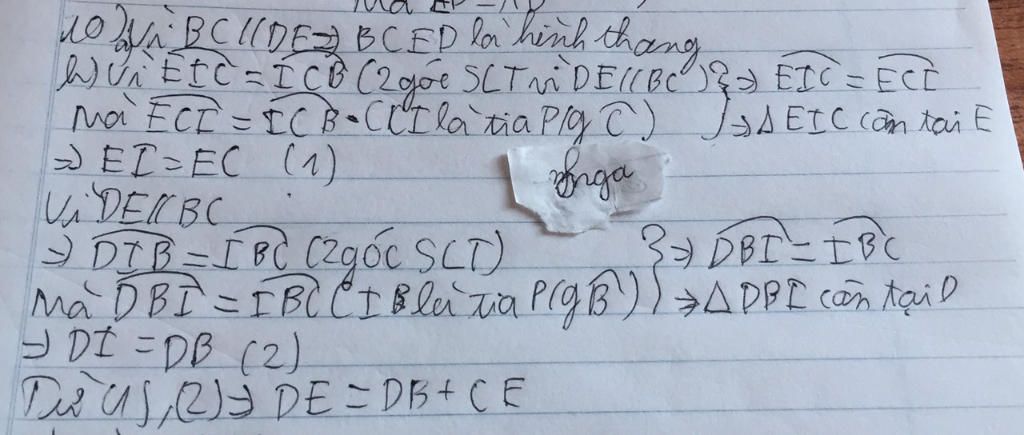 10) a) Vì BC // DE ⇒ BCED là hình thang
b) Vì EIC = ICB (2 góc SLT vì DE // BC) } ⇒ EIC = ECI
Mà ECI = ICB (CI là tia P/g C) } ⇒ Δ EIC cân tại E
⇒ EI = EC (1)
nga
Vì DE // BC
⇒ DIB = IBC (2 góc SLT) } ⇒ DBI = IBC
Mà DBI = IBC (IB là tia P/g B) } ⇒ Δ DBI cân tại D
⇒ DI = DB (2)
Từ (1), (2) ⇒ DE = DB + CE